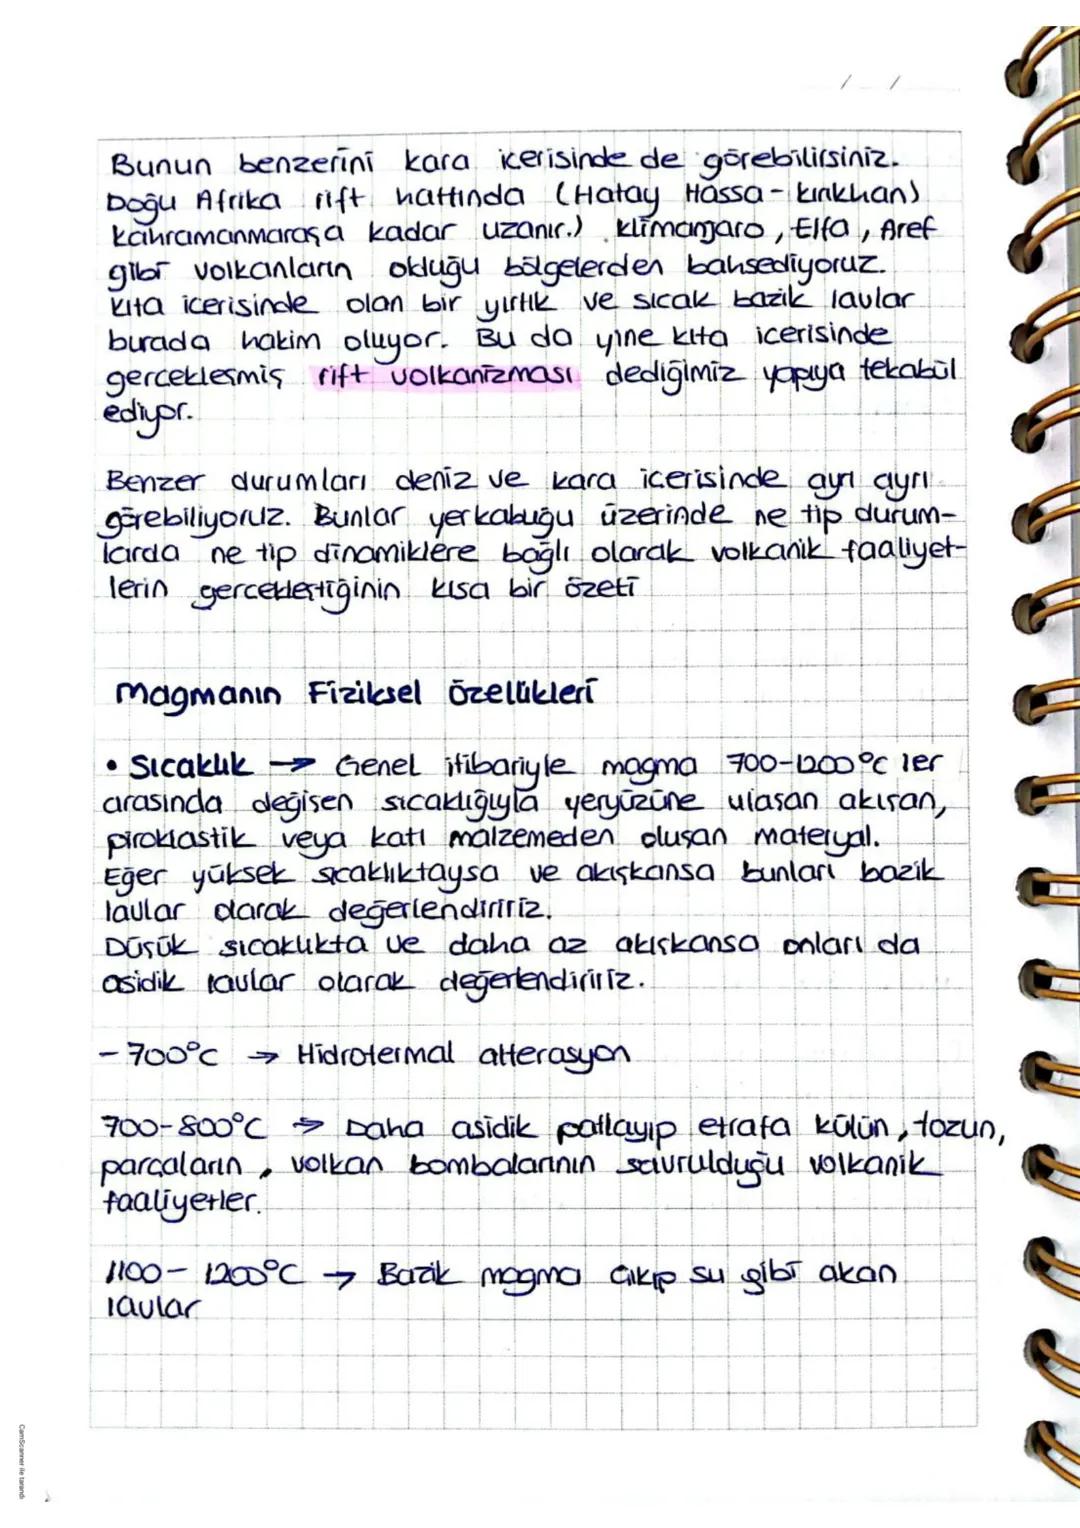 Bunun benzerini kara icerisinde de görebilirsiniz.
Doğu Afrika rift hattında (Hatay Hassa - kırıkhan)
kahramanmaraşa kadar uzanır.) klimanjaro, Elfa, Aref
gibi volkanların olduğu bölgelerden bahsediyoruz.
kıta icerisinde olan bir yırtık ve sıcak bazik lavlar
burada hakim oluyor. Bu da yine kıta icerisinde
gercekleşmiş rift volkanizması dediğimiz yapıya tekabül
ediyor.
Benzer durumları deniz ve kara icerisinde ayrı ayrı
görebiliyoruz. Bunlar yerkabuğu üzerinde ne tip durum-
larda ne tip dinamiklere bağlı olarak volkanik faaliyet-
lerin gercekleştiğinin kısa bir özeti
Magmanın Fiziksel özellikleri
• Sıcaklık → Genel itibariyle magma 700-1200°C ler
arasında değişen sıcaklığıyla yeryüzüne ulasan akışan,
piroklastik veya katı malzemeden oluşan materyal.
Eğer yüksek sıcaklıktaysa ve akışkansa bunları bazik
lavlar olarak değerlendiririz.
Düşük sıcaklıkta ve daha az akışkansa onları da
asidik lavlar olarak değerlendiririz.
- 700°C → Hidrotermal alterasyon
700-800°C → Daha asidik patlayıp etrafa külün, tozun,
parçaların, volkan bombalarının savrulduğu volkanik
faaliyetler.
1100 - 1200°C → Bazik magma çıkıp su gibi akan
lavlar
CamScanner ile tarandı